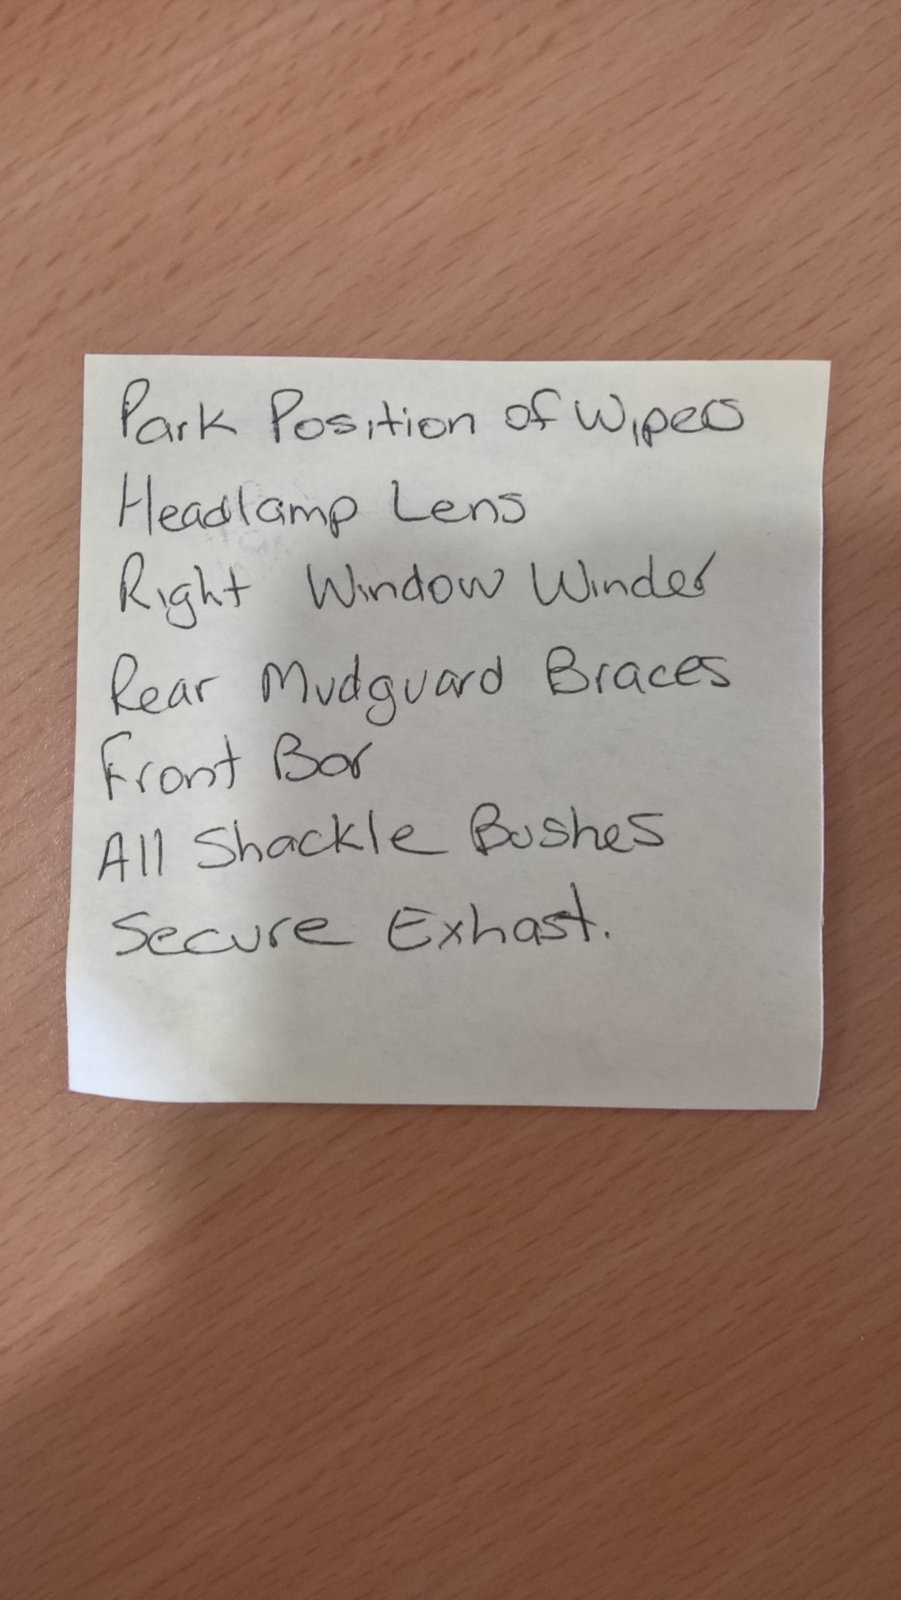 Park Position of Wipers
Headlamp Lens
Right Window Winder
Rear Mudguard Braces
Front Bar
All Shackle Bushes
Secure Exhast.